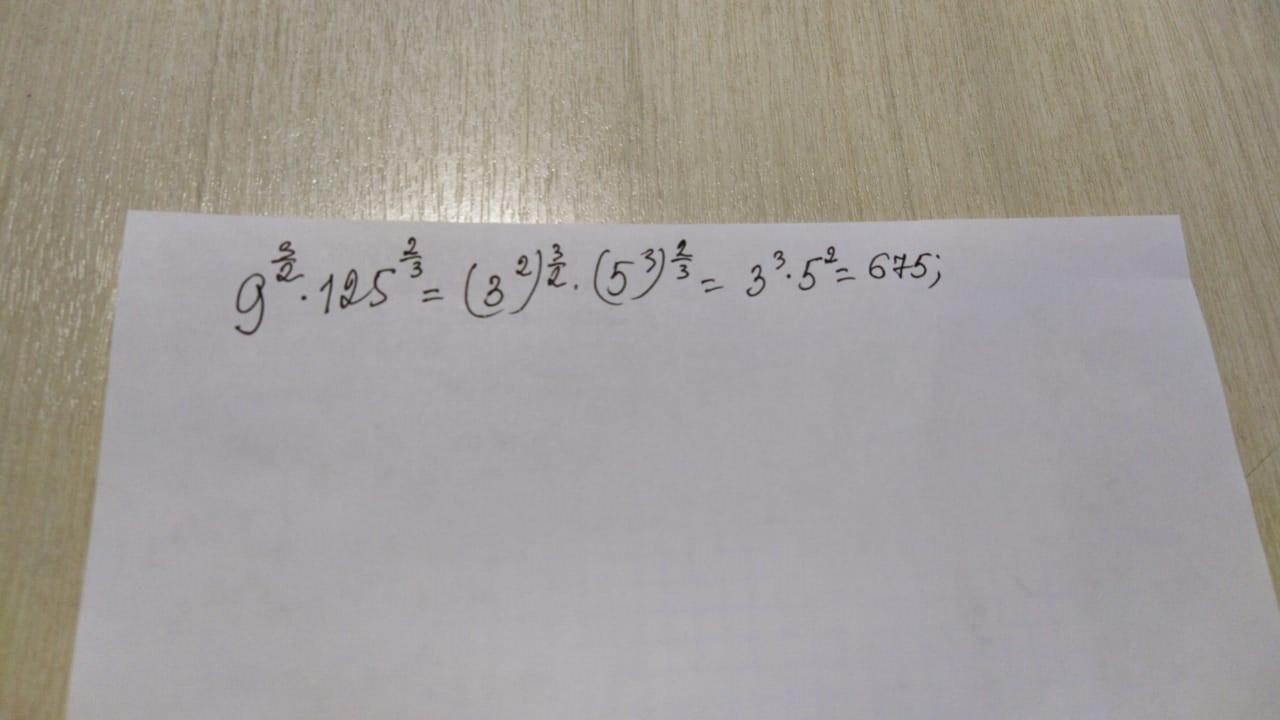 9^{3/2} · 125^{2/3} = (3^2)^{3/2} · (5^3)^{2/3} = 3^3 · 5^2 = 675;